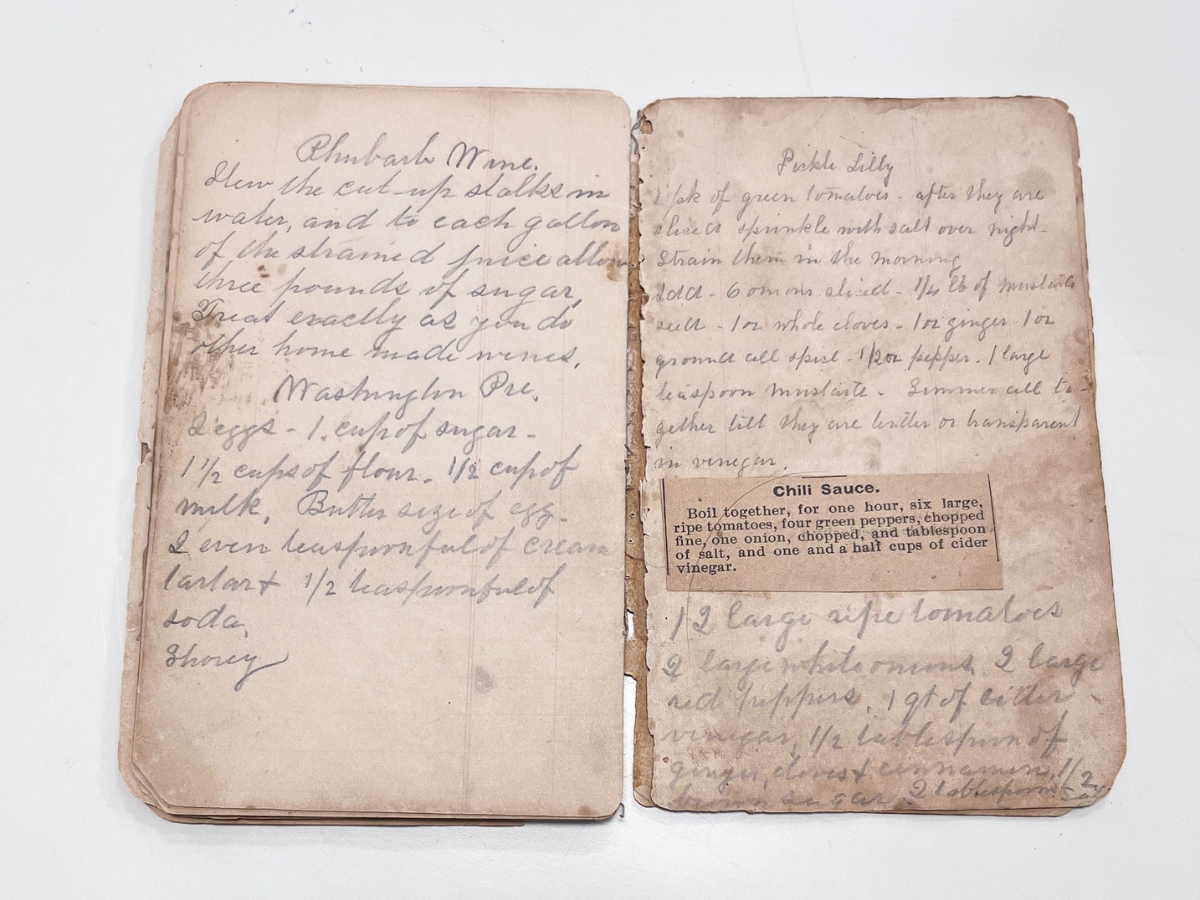 Rhubarb Wine.
Stew the cut-up stalks in
water, and to each gallon
of the strained juice allow
three pounds of sugar,
Treat exactly as you do
other home made wines.
Washington Pie.
2 eggs - 1 cup of sugar -
1 1/2 cups of flour. 1/2 cup of
milk. Butter size of egg.
2 even teaspoonful of cream
tartar & 1/2 teaspoonful of
soda.
Shorey
Pickle Lilly
1 pk of green tomatoes - after they are
sliced sprinkle with salt over night -
Strain them in the morning
add - 6 onions sliced - 1/4 lb of mustard
seed - 1 oz whole cloves - 1 oz ginger 1 oz
ground all spice - 1/2 oz pepper. 1 large
teaspoon mustard - Simmer all to-
gether till they are tender or transparent
in vinegar.
Chili Sauce.
Boil together, for one hour, six large,
ripe tomatoes, four green peppers, chopped
fine, one onion, chopped, and tablespoon
of salt, and one and a half cups of cider
vinegar.
12 large ripe tomatoes
2 large white onions 2 large
red peppers. 1 qt of cider
vinegar, 1/2 tablespoon of
ginger, cloves & cinnamon, 1/2
brown sugar. 2 tablespoons salt